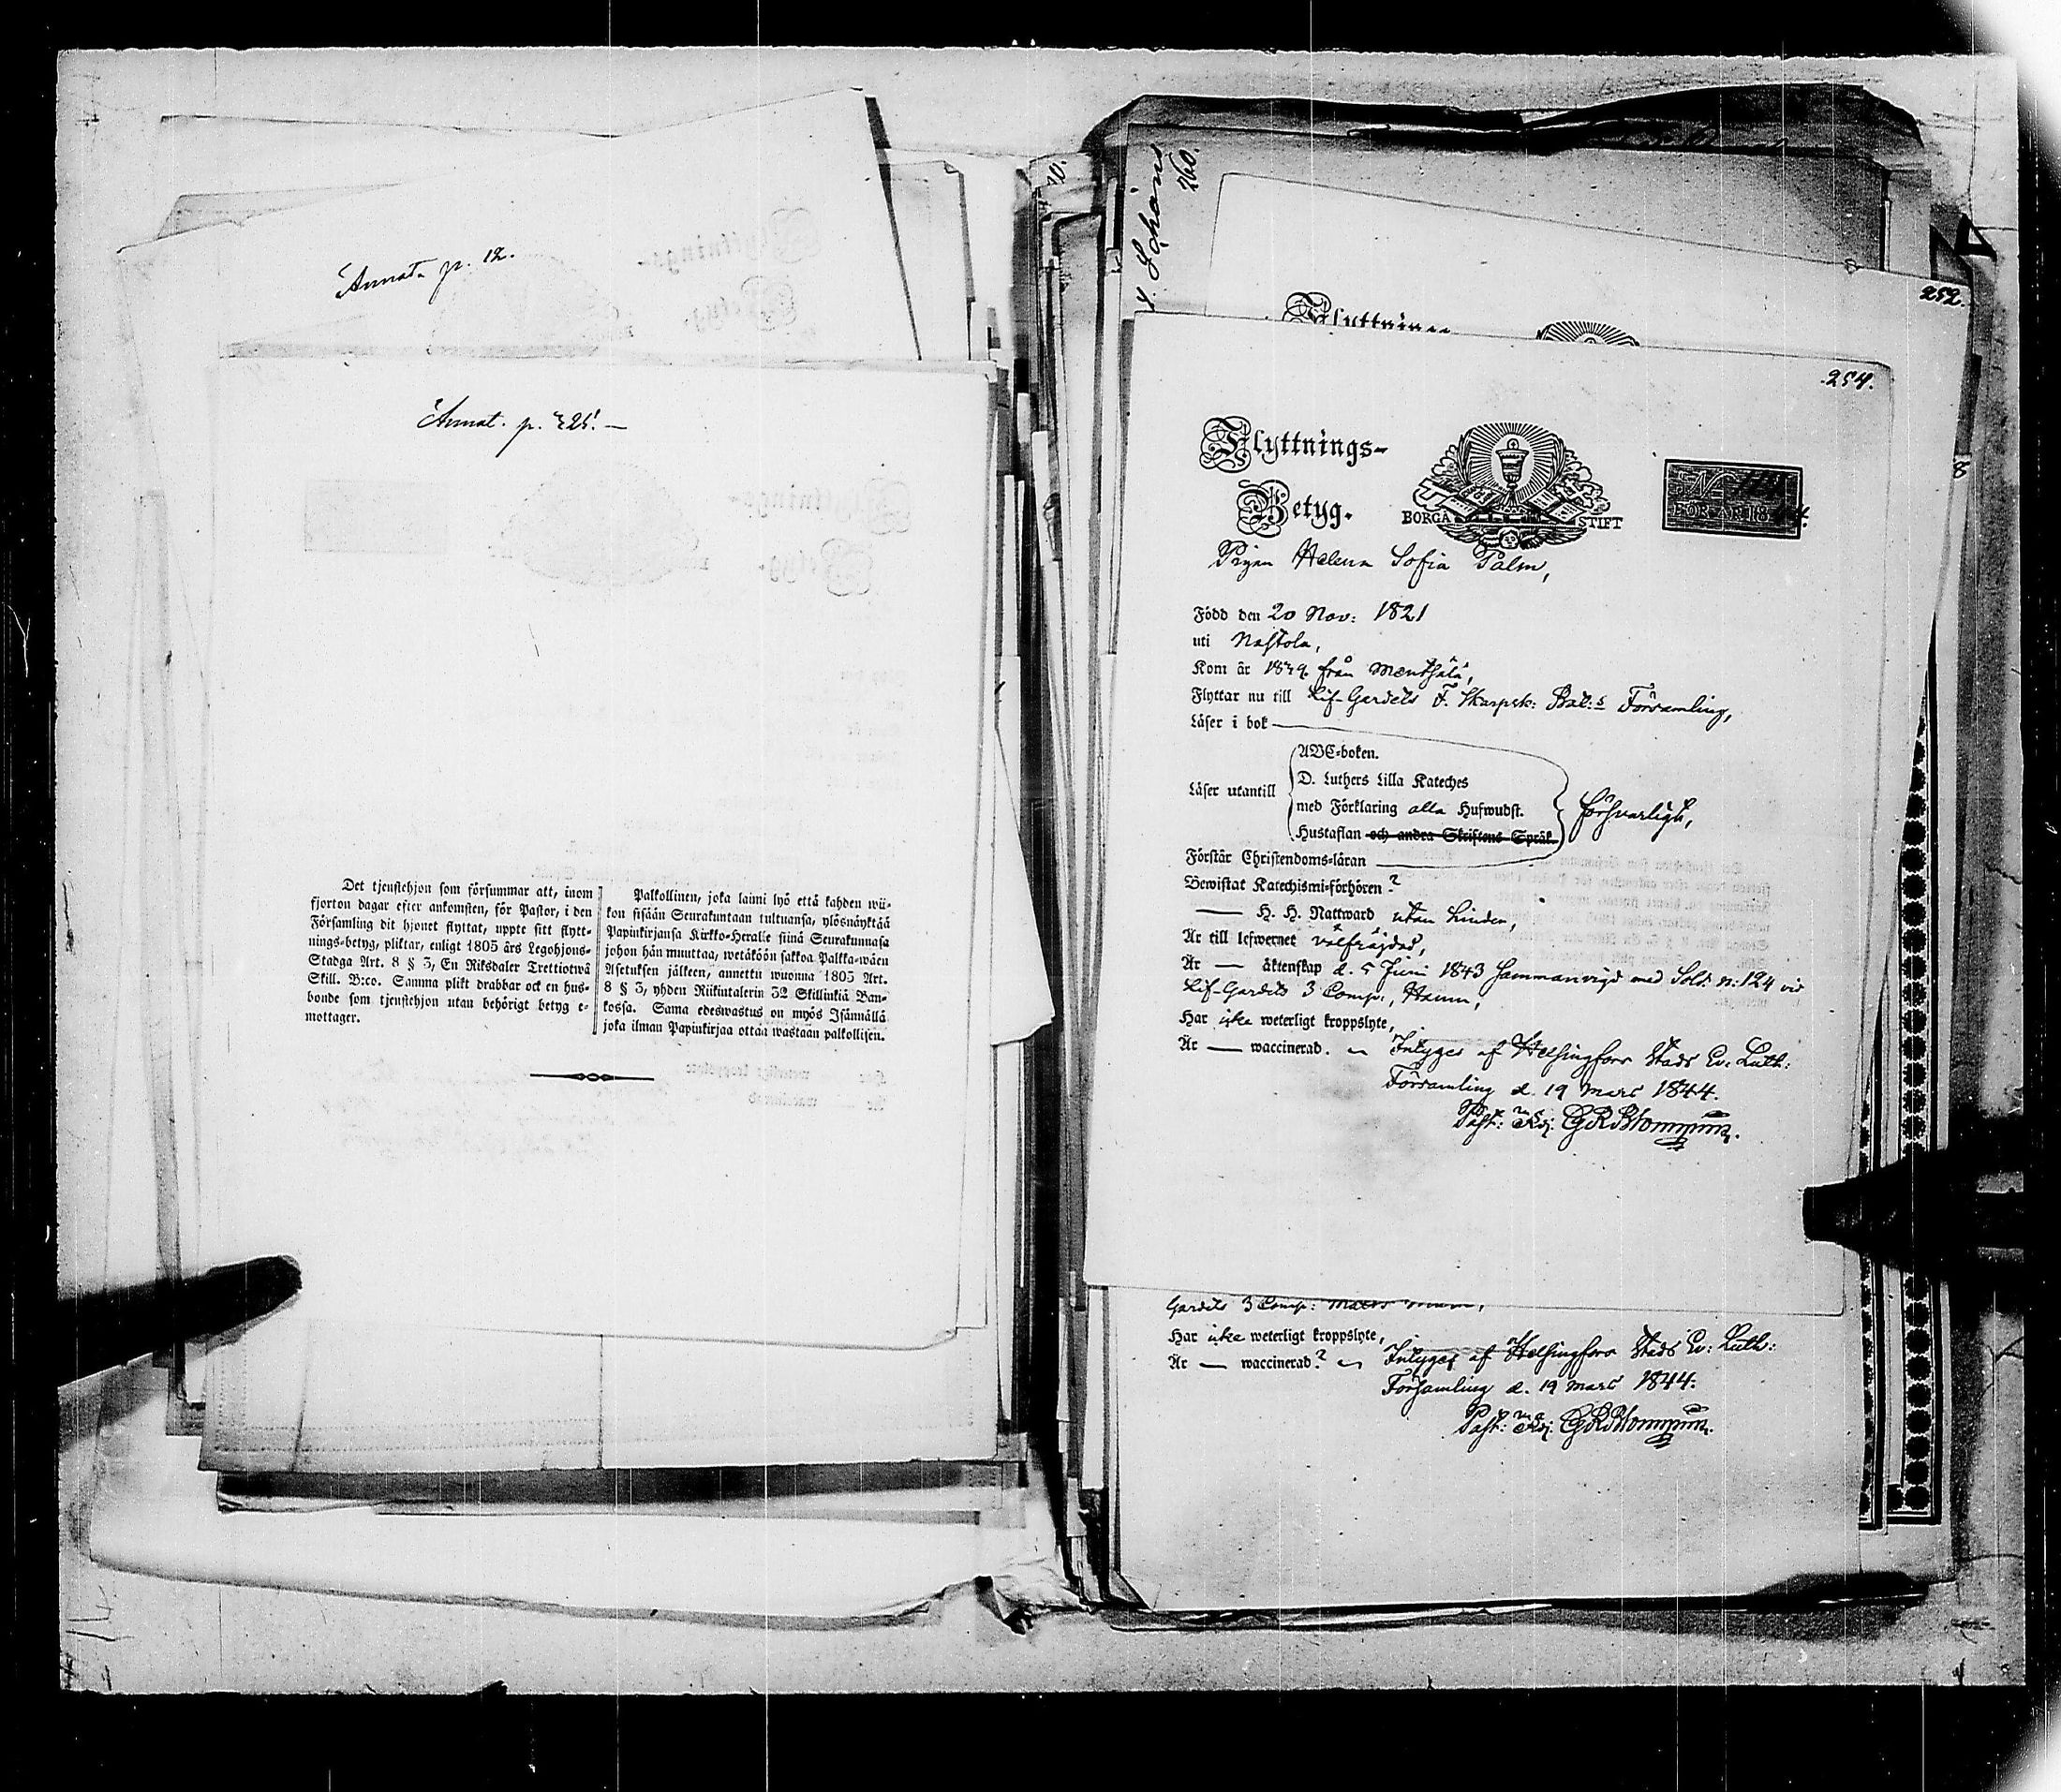 Annot. p. 12.
Annot. p. 325. —
Det tjenstehjon som försummar att, inom
fjorton dagar efter ankomsten, för Pastor, i den
Församling dit hjonet flyttat, uppte sitt flytt-
nings-betyg, pliktar, enligt 1805 års Legohjons-
Stadga Art. 8 § 3, En Riksdaler Trettiotwå
Skill. B:co. Samma plikt drabbar ock en hus-
bonde som tjenstehjon utan behörigt betyg e-
mottager.
Palkollinen, joka laimi lyö että kahden wii-
kon sisään Seurakuntaan tultuansa, ylösnäyttää
Papinkirjansa Kirkko-Heralle siinä Seurakunnasa
johon hän muuttaa, wetäköön sakkoa Palkka-wäen
Asetuksen jälkeen, annettu wuonna 1805 Art.
8 § 3, yhden Riikintalerin 32 Skillinkiä Ban-
kossa. Sama edeswastus on myös Isännällä
joka ilman Papinkirjaa ottaa wastaan palkollisen.
260.
252.
Flyttnings-
254.
Flyttnings-
Betyg.
BORGÅ STIFT
N
FÖR ÅR 1844.
Pigan Helena Sofia Palm,
Född den 20 Nov: 1821
uti Nastola,
Kom år 1839. från Mäntsälä,
Flyttar nu till Lif-Gardets F. Skarpsk: Bat:s Församling,
Läser i bok
Läser utantill
ABC-boken.
D. Luthers Lilla Kateches
med Förklaring alla Hufwudst.
Hustaflan och andra Skriftens Språk.
försvarligt,
Förstår Christendoms-läran
Bewistat Katechismi-förhören ?
— H. H. Nattward utan hinder,
Är till lefwernet välfräjdad,
Är — äktenskap d. 5 Juni 1843 sammanvigd med Sold. n: 124 vid
Lif-Gardets 3 Comp:, Hamn,
Har icke weterligt kroppslyte,
Är — waccinerad. — Intygas af Helsingfors Stads Ev: Luth:
Församling d. 19 Mars 1844.
Past: Adj. G R Blommqvist.
Gardets 3 Comp:
Har icke weterligt kroppslyte,
Är — waccinerad ? — Intygas af Helsingfors Stads Ev: Luth:
Församling d. 19 Mars 1844.
Past: Adj. G R Blommqvist.